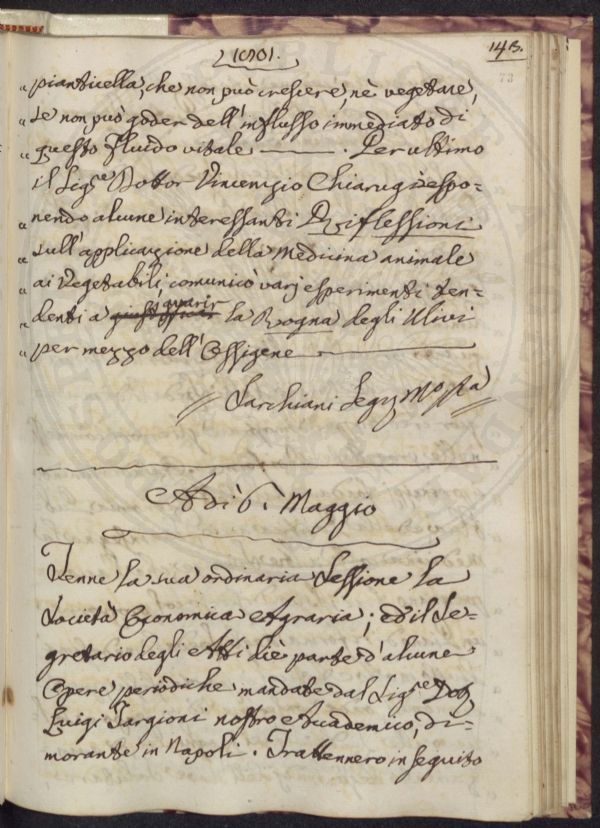 1801.
143.
73
" pianticella, che non può crescere, nè vegetare,
" se non può goder dell'influsso immediato di
" questo fluido vitale ——— . Per ultimo
il Sig.re Dottor Vincenzio Chiarugi espo=
" nendo alcune interessanti Riflessioni
" sull'applicazione della Medicina animale
" ai Vegetabili, comunicò varj esperimenti ten=
" denti a guarir la Rogna degli Ulivi
" per mezzo dell'Ossigene ———
// Sarchiani Seg.
Adì 6. Maggio
Tenne la sua ordinaria Sessione la
Società Economica Agraria; ed il Se=
gretario degli Atti diè parte d'alcune
Opere periodiche mandate dal Sig.re Dott.
Luigi Targioni nostro Accademico, di=
morante in Napoli. Trattennero in seguito